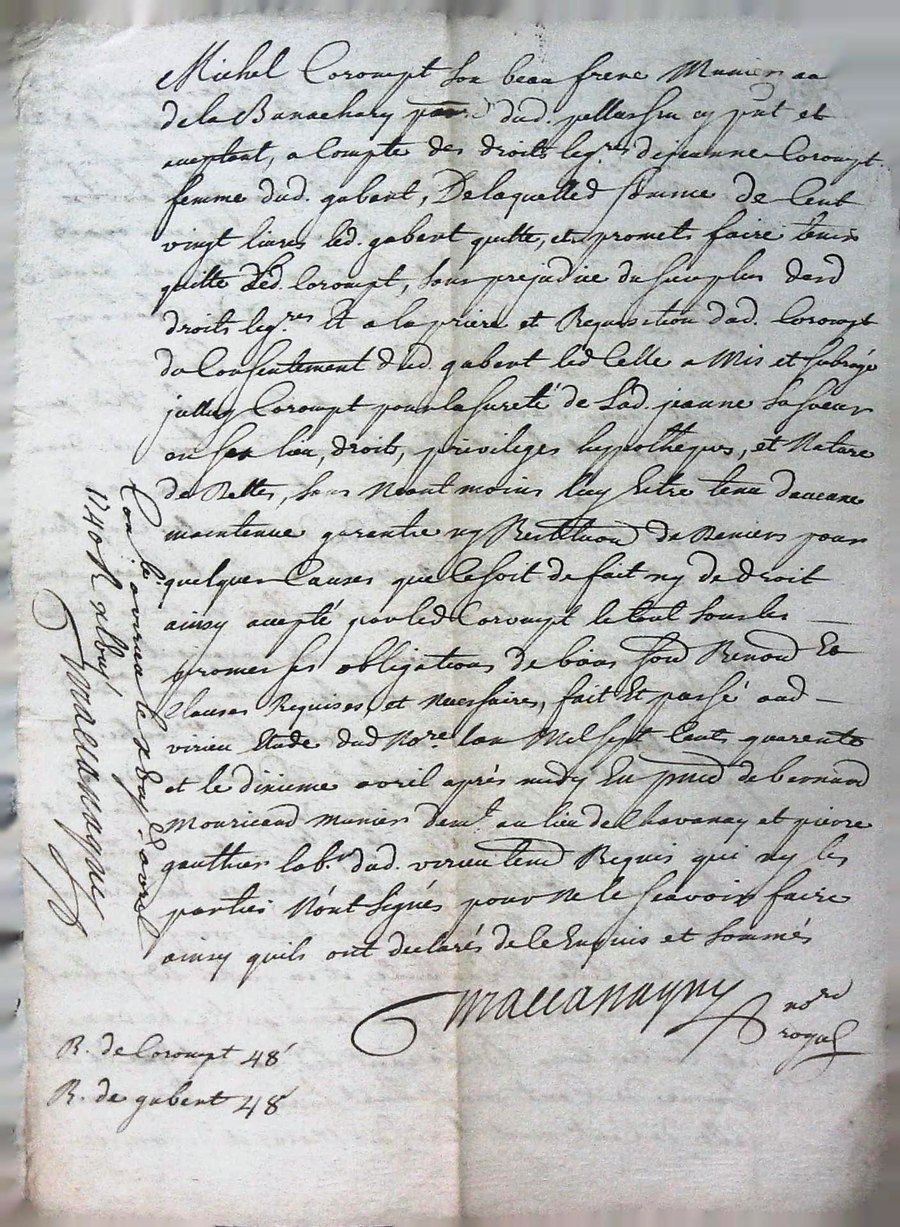 Michel Corompt son beau frere Munier au
de la Bunachary parr. dud. pellussin cy pnt et
aceptant, a Compte des droits leg.res de jeanne Corompt
femme dud. gabert, De laquelled. Somme de Cent
vingt livres led. gabert quitte, et promets faire tenir
quitte Led. Corompt, sans prejudice du surplus desd
droits leg.res Et a la priere et Requisition dud. Corompt
du Consentement dud. gabert led Celle a Mis et subrogé
Corompt pour la sureté de Lad. jeanne sa soeur
en ses lieu, droits, privileges hypotheques, et Nature
de Dettes, sans Neantmoins Luy Estre tenu daucune
maintenue garentie ny Restitution de Deniers pour
quelques Causes que Ce soit de fait ny de droit
ainsy accepté par led Corompt le tout sous les
promesses obligations de biens soud Renond Et
Clauses Requises et Necessaires, fait Et passé aud
virieu Etude dud No.re Lan Mil sept Cents quarente
et le dixieme avril après midy En pnce de bernard
Mouricaud munier dem.t au lieu de Chavanay et pierre
gauthier lab.r dud. virieu tend Requis qui ny les
parties N'ont signés pour ne le scavoir faire
ainsy quils ont declarés de ce Enquis et sommés
Maccanagny no.re
royal
R. de Corompt 48
R. de gabert 48
Con.lé a virieu le avril
1740 R
Maccanagny